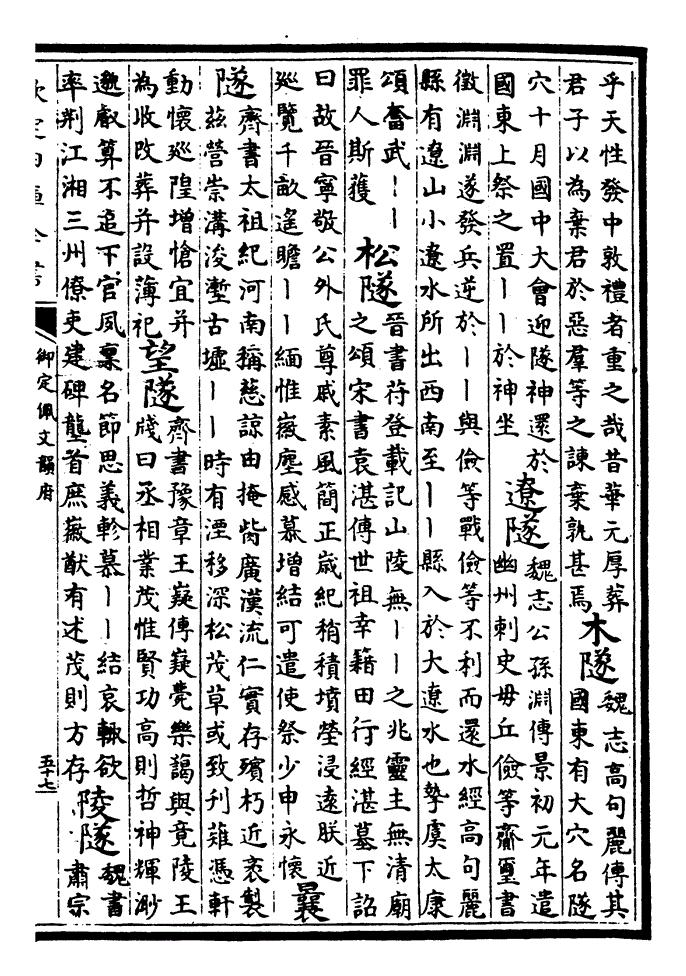 乎天性發中敦禮者重之哉昔華元厚葬
君子以為棄君於惡羣等之諫棄孰甚焉
木隧
魏志高句麗傳其
國東有大穴名隧
穴十月國中大會迎隧神還於
國東上祭之置丨丨於神坐
遼隧
魏志公孫淵傳景初元年遣
幽州刺史毋丘儉等齎璽書
徵淵淵遂發兵逆於丨丨與儉等戰儉等不利而還水經高句麗
縣有遼山小遼水所出西南至丨丨縣入於大遼水也摯虞太康
頌奮武丨丨
罪人斯獲
松隧
晉書苻登載記山陵無丨丨之兆靈主無清廟
之頌宋書袁湛傳世祖幸籍田行經湛墓下詔
曰故晉寧敬公外氏尊戚素風簡正歲紀稍積墳塋浸遠朕近
巡覽千畝遙瞻丨丨緬惟徽塵感慕增結可遣使祭少申永懷
曩
隧
齊書太祖紀河南稱慈諒由掩胔廣漢流仁實存殯朽近袤製
茲營崇溝浚壍古墟丨丨時有湮移深松茂草或致刋薙憑軒
動懷巡隍增愴宜并
為收改葬并設薄祀
望隧
齊書豫章王嶷傳嶷薨樂藹與竟陵王
牋曰丞相業茂惟賢功高則哲神輝渺
邈叡算不追下官夙稟名節思義軫慕丨丨結哀輙欲
率荆江湘三州僚吏建碑壟首庶徽猷有述茂則方存
陵隧
魏書
肅宗
欽定四庫全書
御定佩文韻府
五十七